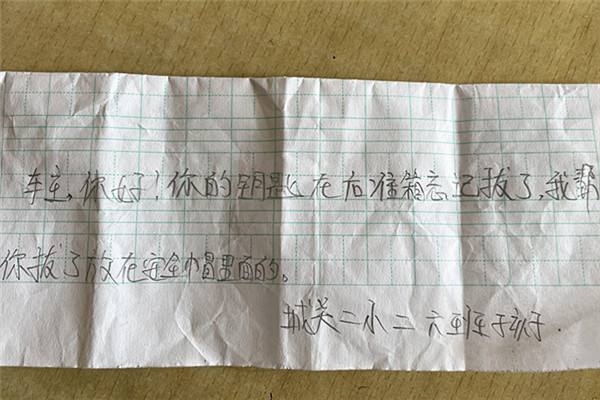 车主,你好!你的钥匙在后准箱忘记拔了,我帮
你拔了放在安全帽里面的。
城关二小二 六班